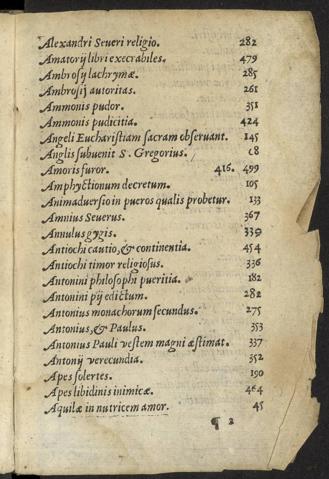 Alexandri Seueri religio. 282
Amatorij libri execrabiles. 479
Ambrosij lachrymæ. 285
Ambrosij autoritas. 261
Ammonis pudor. 351
Ammonis pudicitia. 424
Angeli Eucharistiam sacram obseruant. 145
Anglis subuenit S. Gregorius. 68
Amoris furor. 416. 499
Amphyctionum decretum. 105
Animaduersio in pueros qualis probetur. 133
Amnius Seuerus. 367
Annulus gygis. 339
Antiochi cautio, & continentia. 454
Antiochi timor religiosus. 336
Antonini philosophi pueritia. 182
Antonini pij edictum. 282
Antonius monachorum secundus. 275
Antonius, & Paulus. 353
Antonius Pauli vestem magni æstimat. 337
Antonij verecundia. 352
Apes solertes. 190
Apes libidinis inimicæ. 464
Aquilæ in nutricem amor. 45
¶ 2